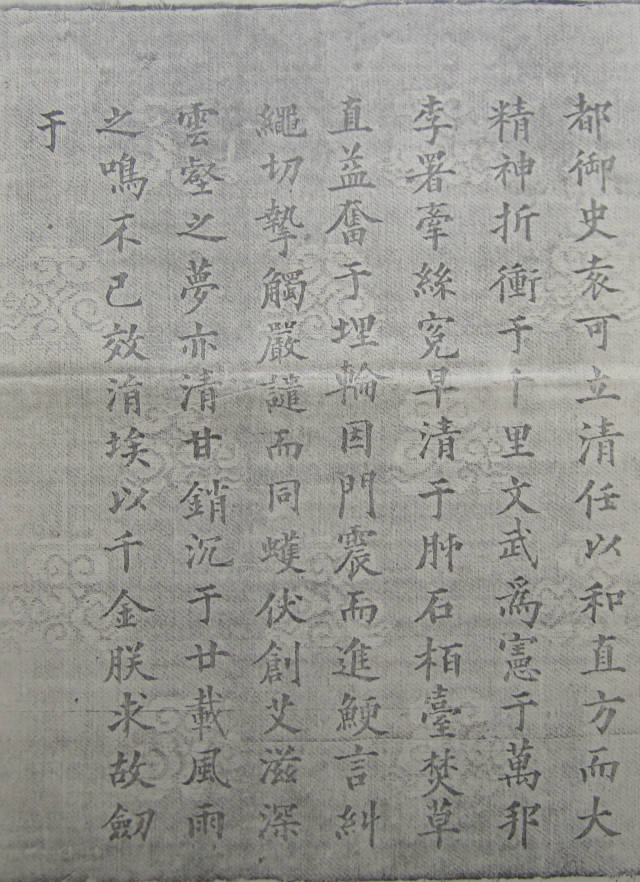 都御史袁可立清任以和直方而大
精神折衝于千里文武為憲于萬邦
李署牽絲冤早清于肺石柏臺焚草
直益奮于埋輪因門震而進鯁言糾
繩切摯觸嚴譴而同蠖伏創艾滋深
雲壑之夢亦清甘銷沉于廿載風雨
之鳴不已效涓埃以千金朕求故劒
于